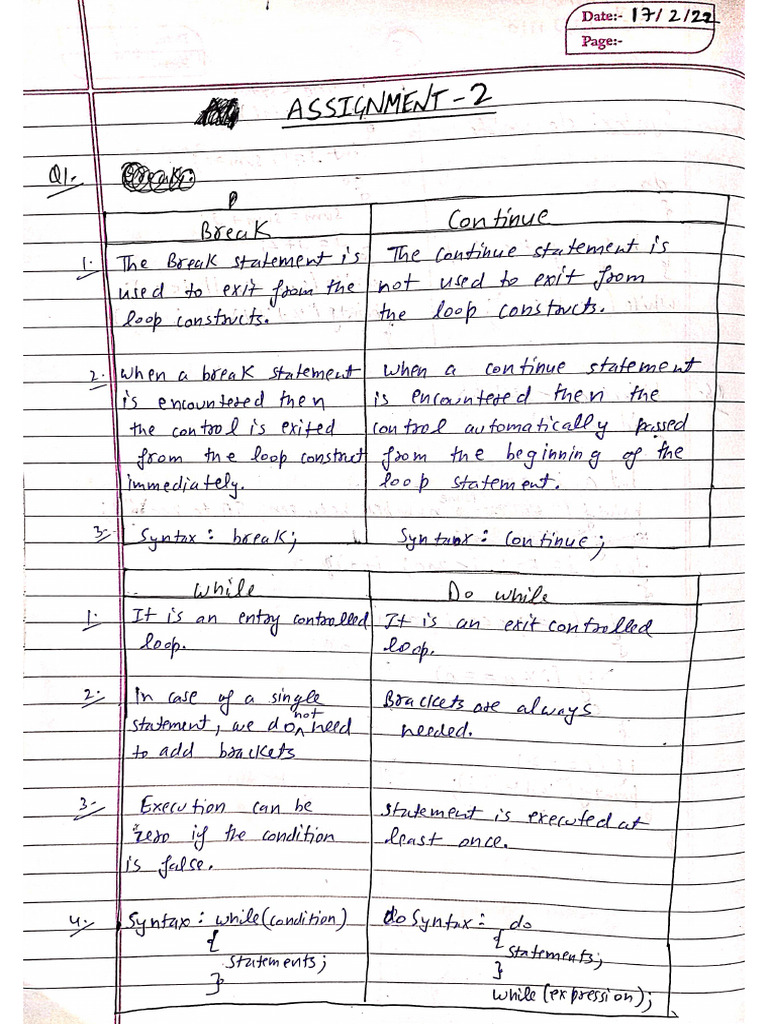 Date:- 17/2/22
Page:-
ASSIGNMENT-2
Q1.
Break
Continue
1. The Break statement is
used to exit from the
loop constructs.
The Continue statement is
not used to exit from
the loop constructs.
2. When a break statement
is encountered then
the control is exited
from the loop construct
immediately.
When a continue statement
is encountered then the
control automatically passed
from the beginning of the
loop statement.
3. Syntax : break;
Syntax : Continue;
While
Do while
1. It is an entry controlled
loop.
It is an exit controlled
loop.
2. In case of a single
statement, we do not need
to add brackets
Brackets are always
needed.
3. Execution can be
zero if the condition
is false.
statement is executed at
least once.
4. Syntax : while(condition)
{
statements;
}
do Syntax : do
{
statements;
}
while(expression);